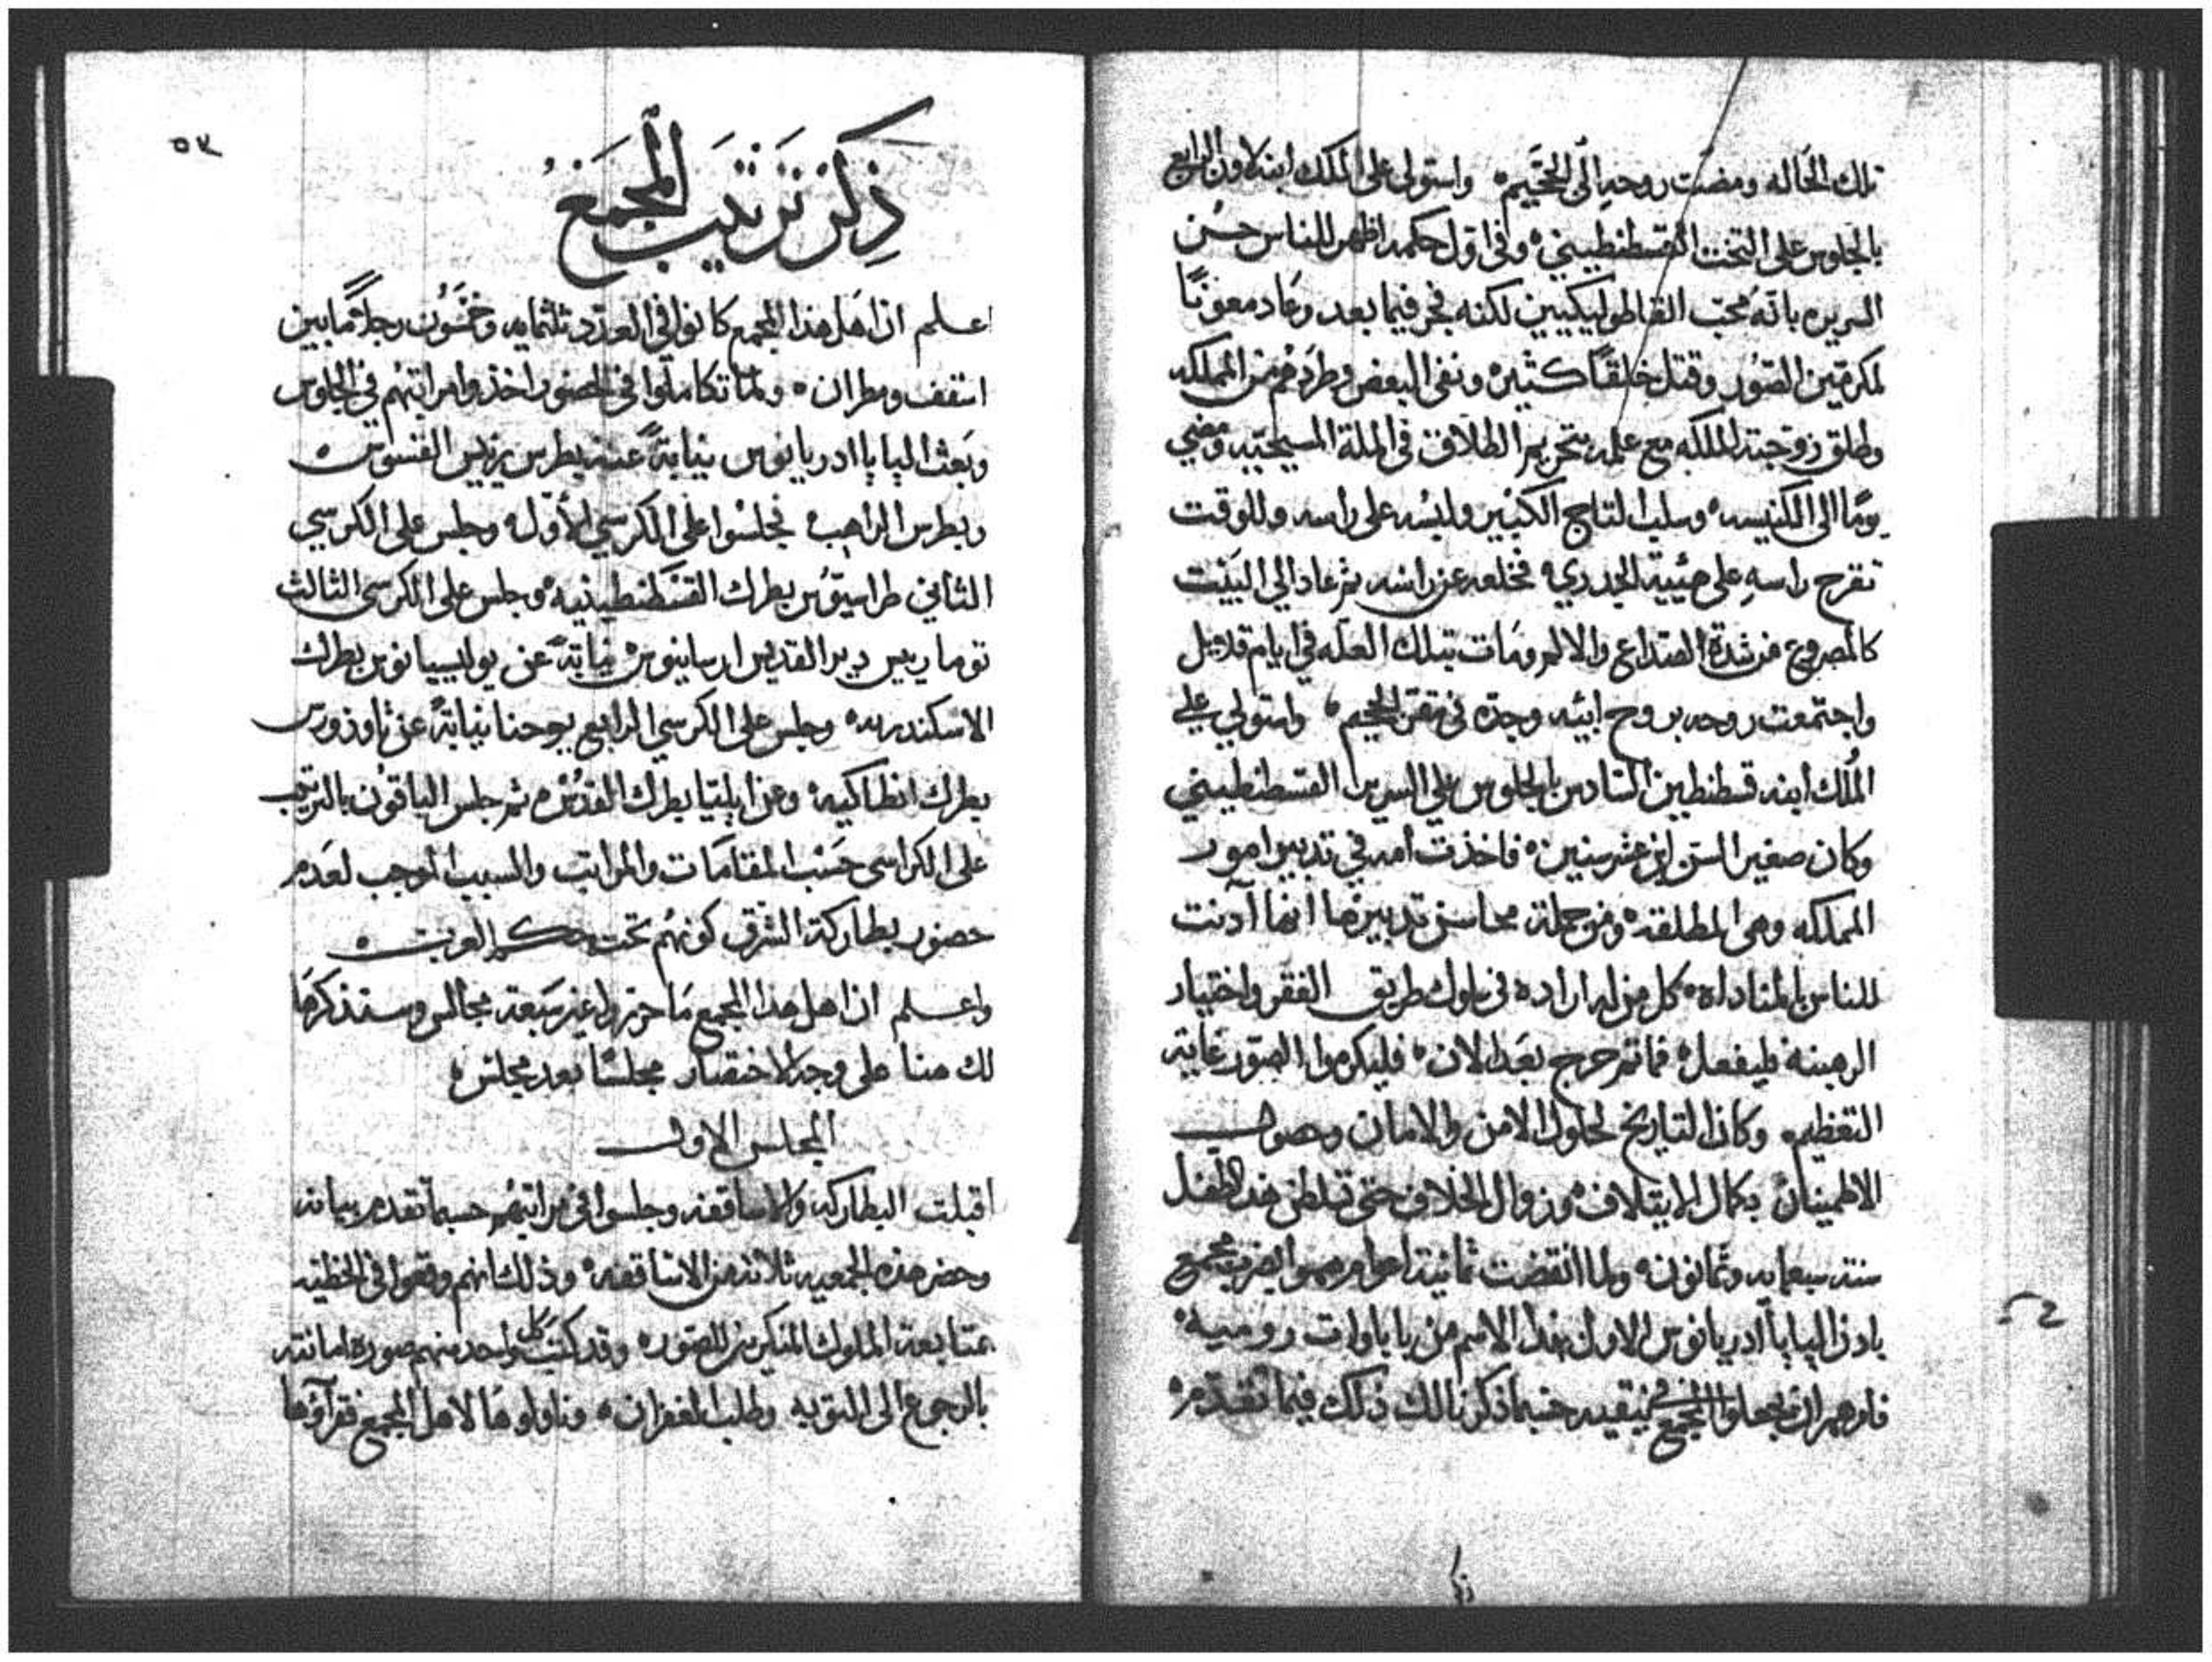 تلك الحاله ومضت روحه الى الجحيم ٥ واستولى على الملك ابنه لاون الرابع
بالجلوس على التخت القسطنطيني ٥ وفي اول حكمه اظهر للناس حسن
السريره بانه محب القاطوليكيين لكنه فجر فيما بعد وعاد معوزبا
لمكرمين الصور وقتل خلقا كثيره ونفى البعض وطردهم من المملكه
وطلق زوجته الملكه مع علمه بتحريم الطلاق في الملة المسيحيه ومضي
يوما الى الكنيسه ٥ وسلب التاج الكبير ولبسه على راسه وللوقت
تقرح راسه على هيئية الجدري ٥ فخلعه عن راسه ثم عاد الي البيت
كالمصروع من شدة الصداع والالم ومات بتلك العله في ايام قلايل
واجتمعت روحه بروح ابيه وجده في مقر الجحيم ٥ واستولي علي
الملك ابنه قسطنطين السادس بالجلوس علي السرير القسطنطيني
وكان صغير السن ابن عشر سنين ٥ فاخذت امه في تدبير امور
المملكه وهي المطلقه ٥ ومن جملة محاسن تدبيرها انها آدنت
للناس بالمناداه ٥ كل من له اراده في سلوك طريق الفقر واختيار
الرهبنه فليفعل ٥ فما ثم حرج بعد الان ٥ فليكرموا الصور غاية
التعظيم ٥ وكان التاريخ لحلول الامن والامان وحصول
الاطمينان بكمال الايتلاف ٥ وزوال الخلاف حتى تسلطن هذا الطفل
سنة سبعمايه وثمانون ٥ ولما انقضت ثمانية اعوام هموا بضرب مجمع
باذن البابا ادريانوس الاول بهذا الاسم من باباوات روميه ٥
فامرهم ان يجعلوا المجمع في نيقيه حسبما ذكرنا لك ذلك فيما تقدم ٥
ذكر
٥٧
ذكر ترتيب المجمع
اعلم ان اهل هذا المجمع كانوا في العدد ثلثمايه وخمسون رجلا ما بين
اسقف ومطران ٥ ولما تكاملوا في الحضور اخذوا مراتبهم في الجلوس
وبعث البابا ادريانوس نيابة عنه بطرس ريس القسوس ٥
وبطرس الراهب ٥ فجلسوا على الكرسي الاول ٥ وجلس على الكرسي
الثاني طراسيوس بطرك القسطنطينيه ٥ وجلس على الكرسي الثالث
توما ريس دير القديس ارسانيوس نيابة عن بوليسيانوس بطرك
الاسكندريه ٥ وجلس على الكرسي الرابع يوحنا نيابة عن ثاوذورس
بطرك انطاكيه ٥ وعن ايليا بطرك القدس ٥ ثم جلس الباقون بالترتيب
على الكراسي حسب المقامات والمراتب والسبب الموجب لعدم
حضور بطاركة الشرق كونهم تحت حكم العرب ٥
واعلم ان اهل هذا المجمع ما حرروا غير سبعة مجالس وسنذكرها
لك هنا على وجه الاختصار مجلسا بعد مجلس ٥
المجلس الاول
اقبلت البطاركه والاساقفه وجلسوا في مراتبهم حسبما تقدم بيانه
وحضر هذه الجمعيه ثلاثه من الاساقفه ٥ وذلك انهم وقعوا في الخطيه
بمتابعة الملوك المنكرين للصور ٥ وقد كتب كل واحد منهم صورة امانته
بالرجوع الى التوبه وطلب الغفران ٥ وناولوها لاهل المجمع فقرآؤها